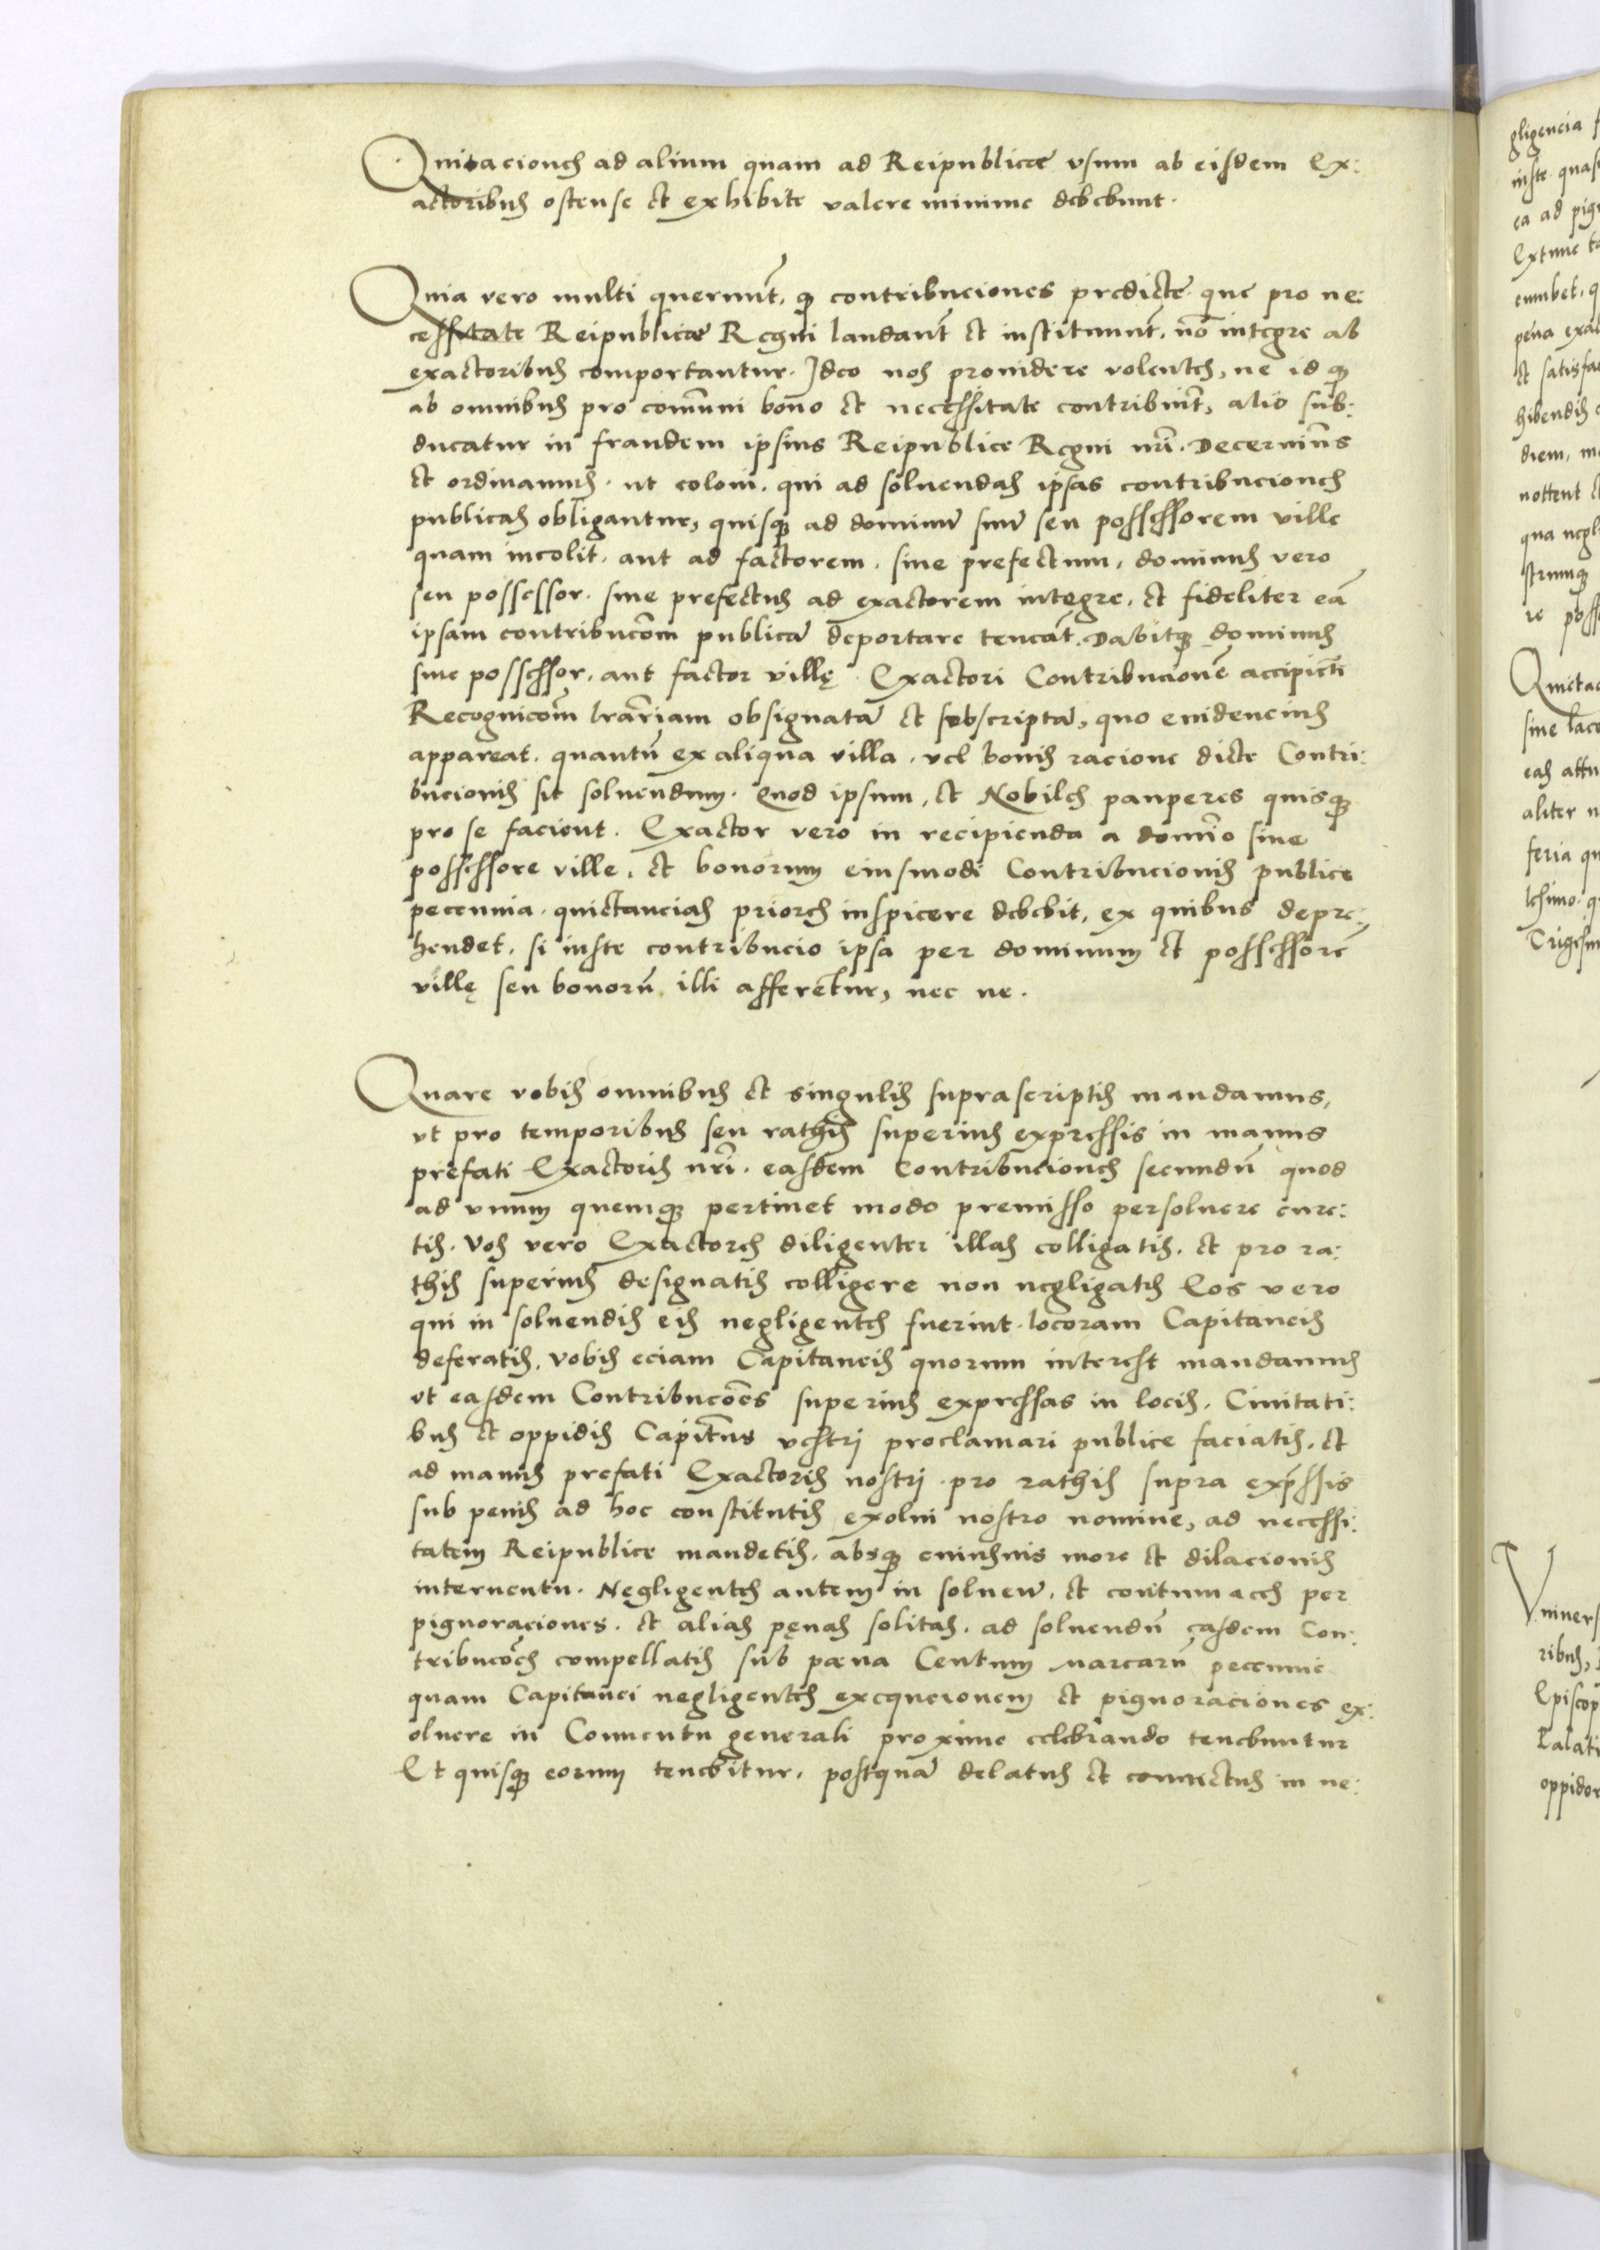 Quitaciones ad alium quam ad Reipublicae vsum ab eisdem Ex:
actoribus ostense et exhibite valere minime debebunt.
Quia vero multi querunt͂, qz contribuciones predicte que pro ne:
cessitate Reipublicae Regni laudant͂ et instituunt͂, no͂ integre ab
exactoribus comportantur. Ideo nos prouidere volentes, ne id qd
ab omnibus pro com͂uni bono et necessitate contribuit͂, alio sub:
ducatur in fraudem ipsius Reipublice Regni nr͂i. Decernim͂s
et ordinamus. ut coloni, qui ad soluendas ipsas contribuciones
publicas obligantur, quisqz ad dominu͂ suu͂ seu possessorem ville
quam incolit. aut ad factorem, siue prefectum, dominus vero
seu possessor. siue prefectus ad exactorem integre, et fideliter ea͂
ipsam contribuco͂m publica͂ deportare teneat͂. Dabitqz dominus
siue possessor, aut factor villę. Exactori Contribucione͂ accipien͂ti
Recognico͂m lr͂ariam obsignata͂ et subscripta͂, quo euidencius
appareat. quantu͂ ex aliqua villa, vel bonis racione dicte Contri:
bucionis sit soluendum. Quod ipsum, et Nobiles pauperes quisqz
pro se facient. Exactor vero in recipienda a domi͂o siue
possessore ville, et bonorum eiusmodi Contribucionis publice
pecunia. quictancias priores inspicere debebit, ex quibus depre:
hendet, si iuste contribucio ipsa per dominum et possessore͂
villę seu bonoru͂ illi afferetur, nec ne.
Quare vobis omnibus et singulis suprascriptis mandamus,
vt pro temporibus seu rathis superius expressis in manus
prefati Exactoris nr͂i. easdem Contribuciones secundu͂ quod
ad vnum quemqz pertinet modo premisso persoluere cure:
tis. Vos vero Exactores diligenter illas colligatis, et pro ra:
this superius designatis colligere non negligatis Eos vero
qui in soluendis eis negligentes fuerint. locoram Capitaneis
deferatis, vobis eciam Capitaneis quorum interest mandamus
vt easdem Contribuco͂es superius expressas in locis, Ciuitati:
bus et oppidis Capit͂tus vestri proclamari publice faciatis, et
ad manus prefati Exactoris nostri pro rathis supra exp͂ssis
sub penis ad hoc constitutis exolui nostro nomine, ad necessi:
tatem Reipublice mandetis, absqz cuiusuis more et dilacionis
interuentu. Negligentes autem in soluen͂, et contumaces per
pignoraciones, et alias pęnas solitas, ad soluendu͂ easdem Con:
tribuco͂es compellatis sub paena Centum marcaru͂ pecunie
quam Capitanei negligentes execucionem et pignoraciones ex:
oluere in Conuentu generali proxime celebrando tenebuntur
Et quisqz eorum tenebitur, postqua͂ delatus et conuictus in ne: